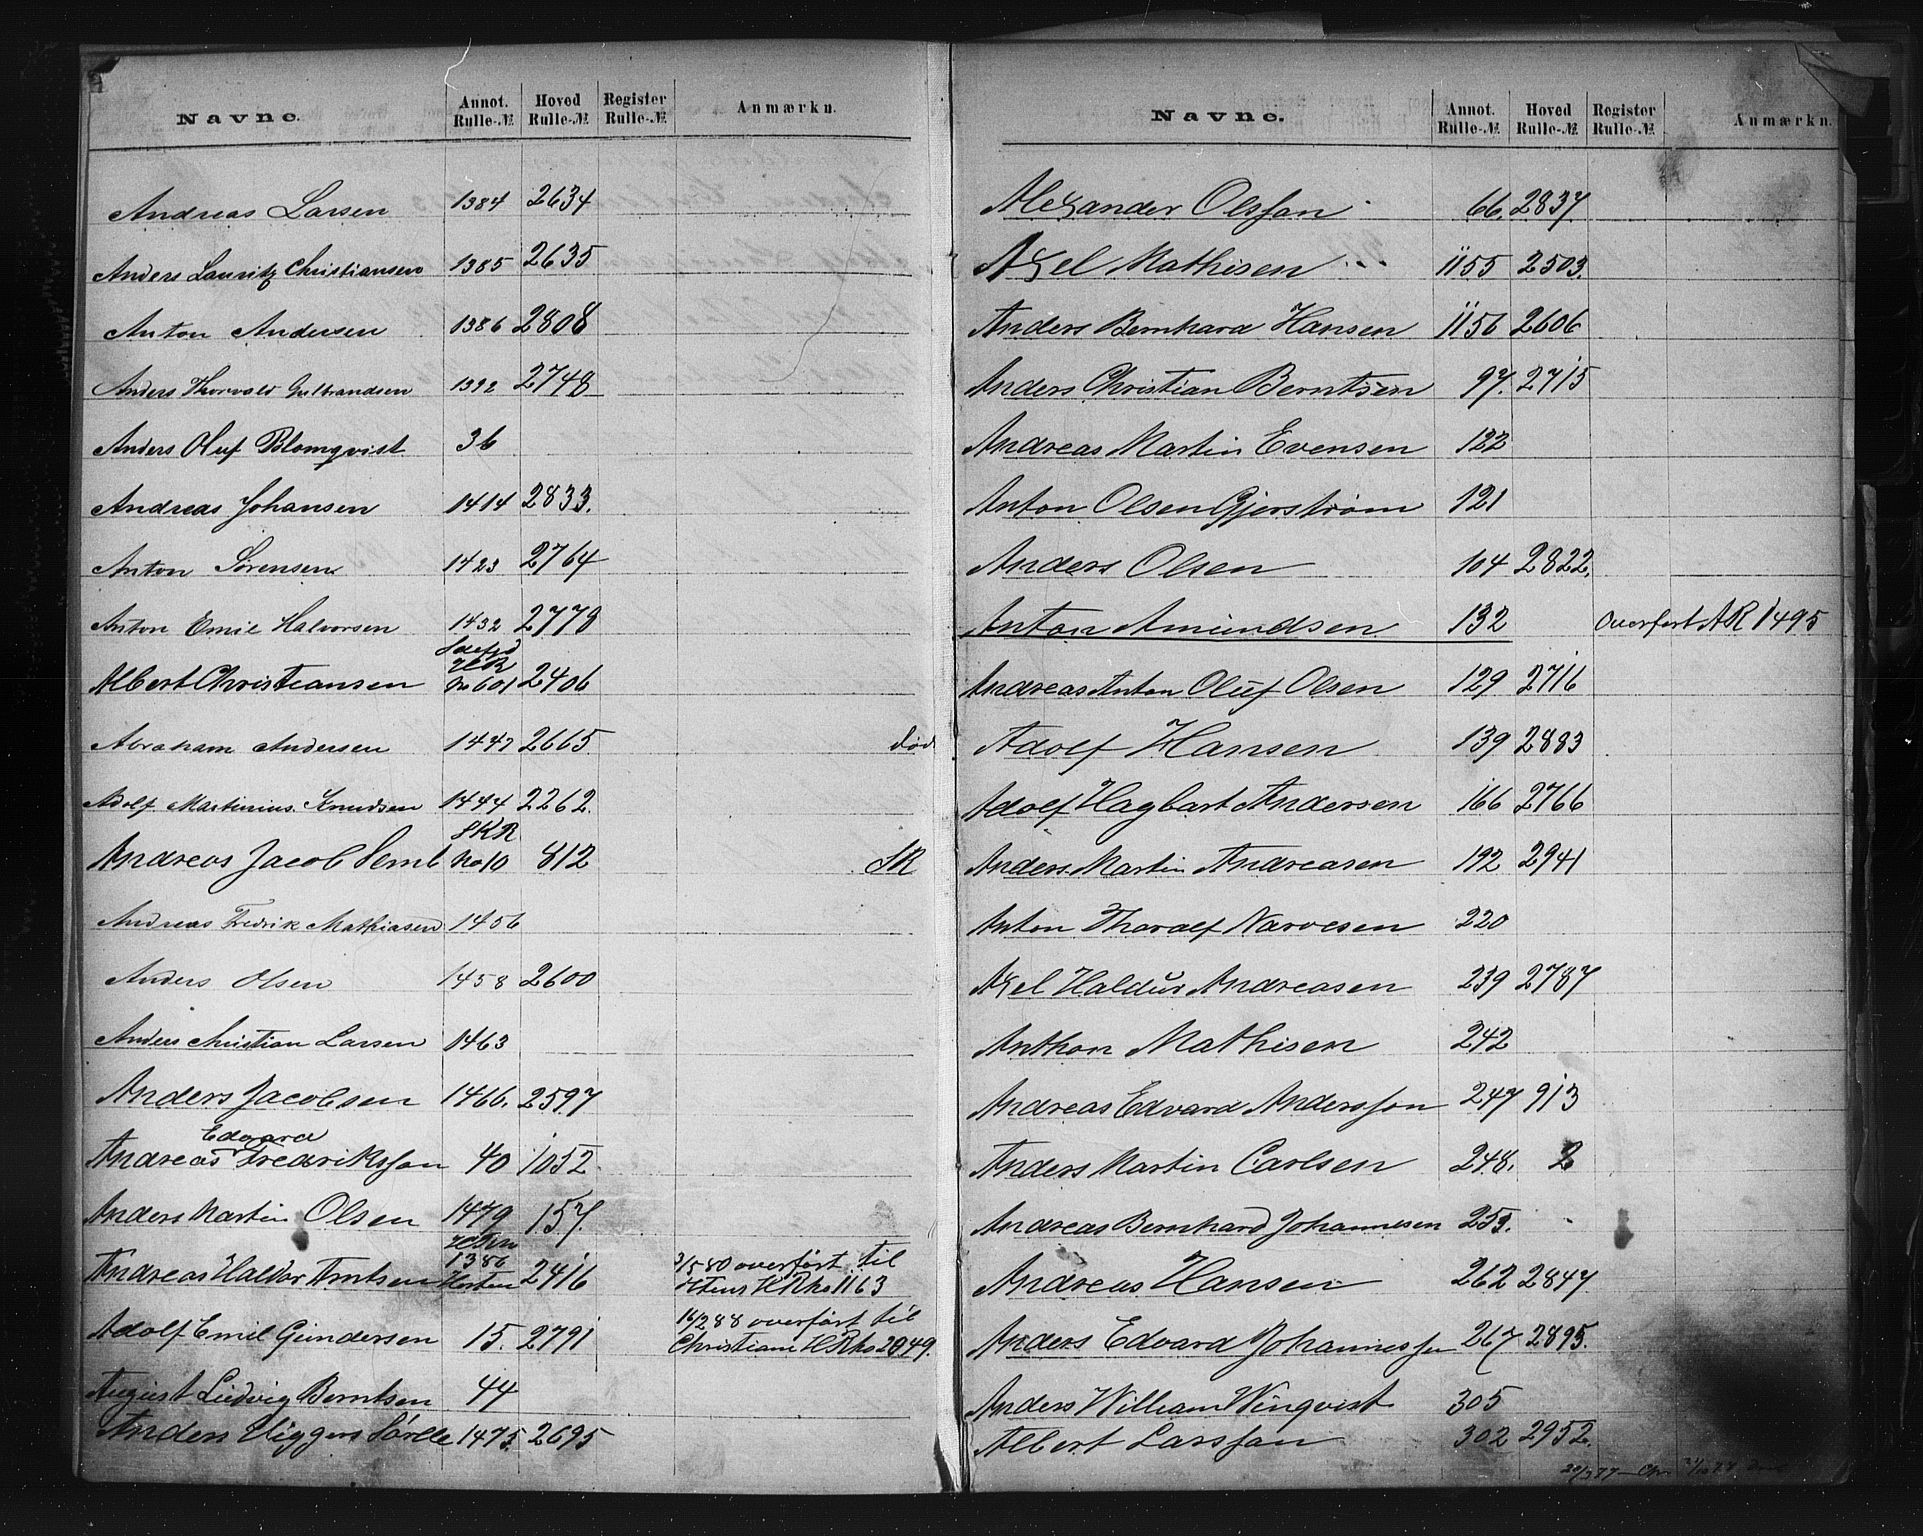 Navne. Annot. Rulle-№ Hoved Rulle-№ Register Rulle-№ Anmærkn.
Andreas Larsen 1384 2634
Anders Lauritz Christiansen 1385 2635
Anton Andersen 1386 2808
Anders Thorvald Gulbrandsen 1392 2748
Anders Oluf Blomqvist 36
Andreas Johansen 1414 2833.
Anton Sørensen 1423 2764
Anton Emil Halvorsen 1432 2779
Albert Christiansen No 601 2406
Abraham Andersen 1447 2665 død
Adolf Martinius Knudsen 1444 2262
Andreas Jacob Semb SKR No 10 812 SR
Andreas Fredrik Mathiasen 1456
Anders Olsen 1458 2600
Anders Christian Larsen 1463
Anders Jacobsen 1466. 2597
Andreas Edvard Fredriksson 40 1052
Anders Martin Olsen 1479 157.
Andreas Haldor Arntsen 1386 Horten 2416 3/5 80 overført til
HRno 1163
Adolf Emil Gundersen 15. 2791 14/2 88 overført til
Christiani HRno 2049.
August Ludvig Berntsen 44
Anders Viggers Sørlle 1475. 2695
Navne. Annot. Rulle-№ Hoved Rulle-№ Register Rulle-№ Anmærkn.
Alexander Olsson 66. 2837
Axel Mathisen 1155 2503.
Anders Bernhard Hansen 1156 2606
Anders Christian Berntsen 97. 2715
Andreas Martin Evensen 122
Anton Olsen Gjerstrøm 121
Anders Olsen 104 2822.
Anton Amundsen 132 overført AR 1495
Andreas Anton Oluf Olsen 129 2716
Adolf Hansen 139 2883
Adolf Hagbart Andersen 166 2766
Anders Martin Andreasen 192 2941
Anton Thoralf Narvesen 220
Axel Haldur Andreasen 239 2787
Anthon Mathisen 242
Andreas Edvard Andersson 247 913
Anders Martin Carlsen 248. 2
Andreas Bernhard Johannesen 253.
Andreas Hansen 262 2847
Anders Edvard Johannessen 267 2895.
Anders William Winqvist 305
Albert Larsson 302 2952.